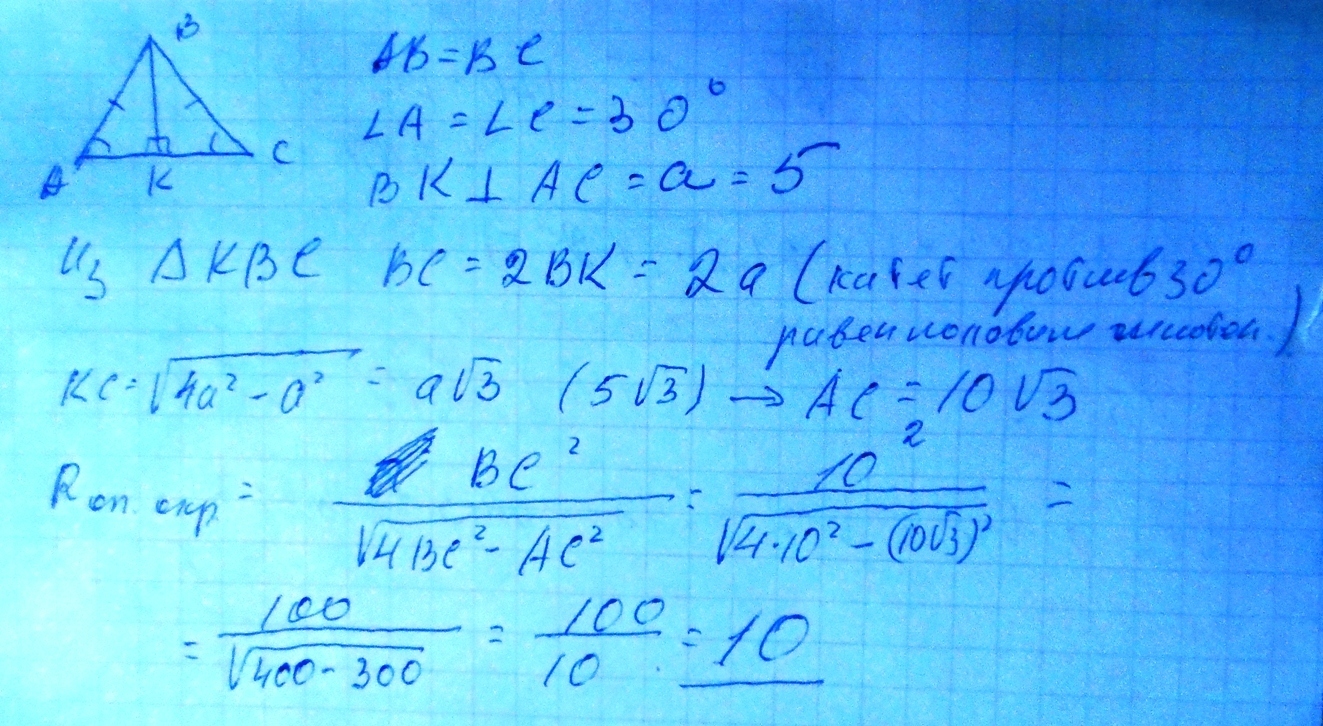 B
A K C
AB=BC
∠A=∠C=30°
BK⊥AC=a=5
Из ΔKBC BC=2BK=2a (катет против 30°
равен половине гипотен.)
KC=√(4a²-a²) = a√3 (5√3) → AC=10√3
R оп. окр. = BC²/√(4BC²-AC²) = 10²/√(4·10²-(10√3)²) =
= 100/√(400-300) = 100/10 = 10